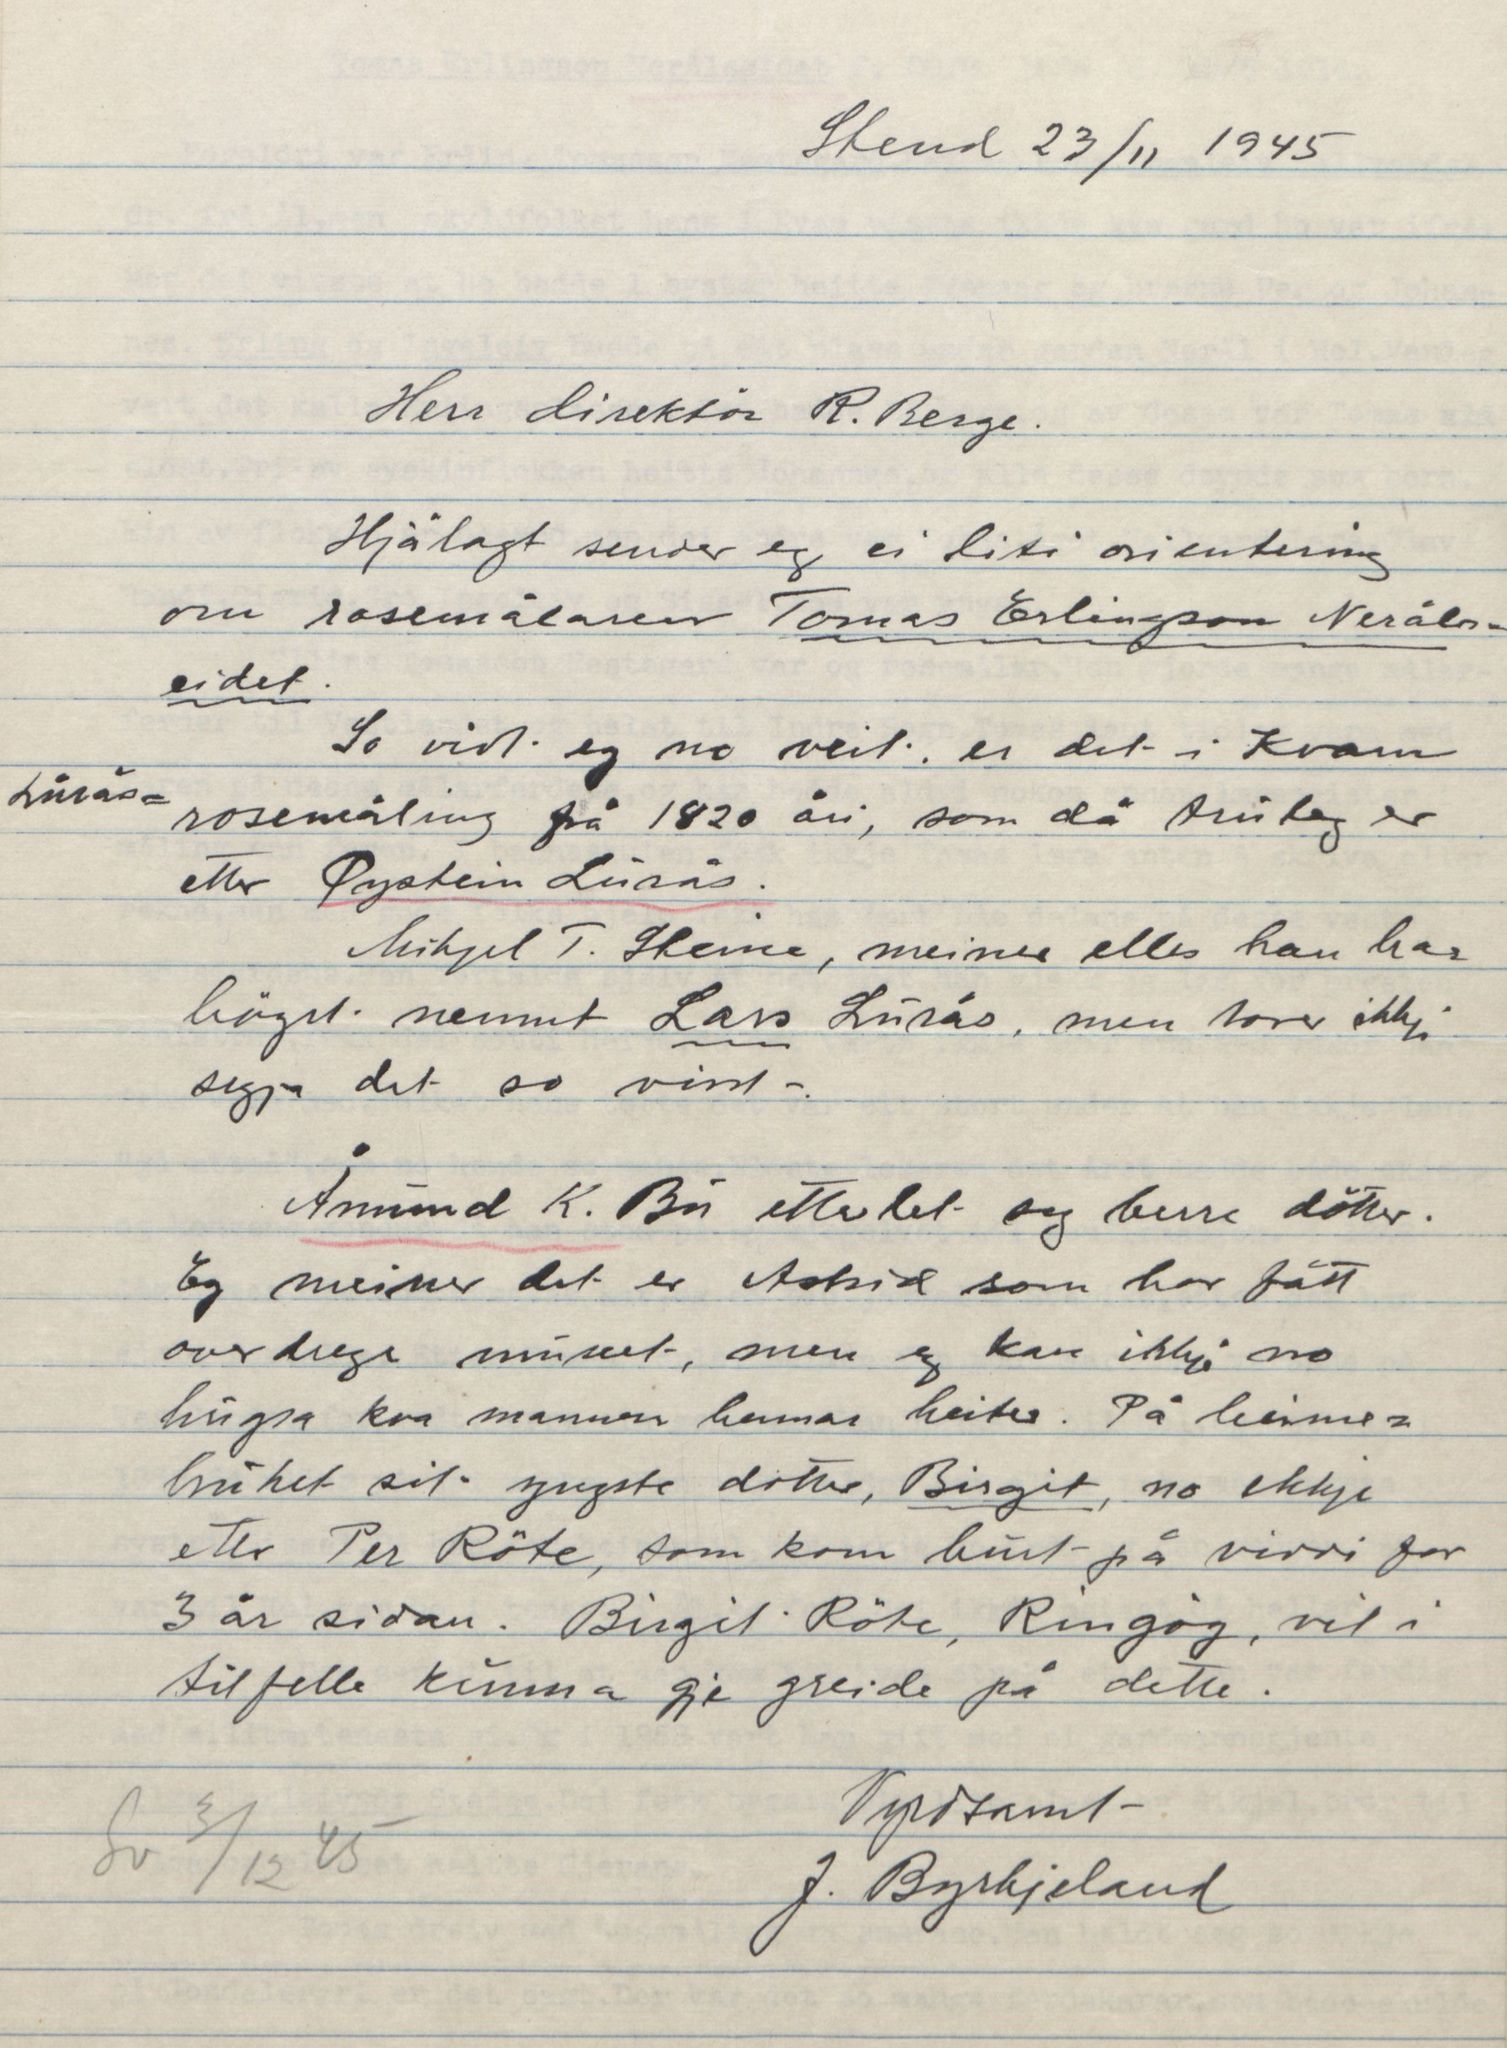 Stend 23/11 1945
Herr direktör R. Berge.
Hjålagt sender eg ei liti orientering
om rosemålaren Tomas Erlingson Neråls=
eidet.
So vidt eg no veit. er det i Kvam
Lûrås=
rosemåling frå 1820 åri, som då trûleg er
etter Øystein Lûrås.
Mikjel T. Steine, meiner elles han har
höyrt nemnt Lars Lûrås, men torer ikkje
segja det so visst.
Åmûnd K. Bû etterlet seg berre dötter.
Eg meiner det er Astrid som har fått
overdrege mûseet, men eg kan ikkje no
hûgsa kva mannen hennar heiter. På heime=
brûket sit yngste dotter, Birgit, no ekkje
etter Per Röte, som kom bûrt på viddi for
3 år sidan. Birgit Röte, Ringöy, vil i
tilfelle kûnna gje greide på dette.
Vyrdsamt
J. Byrkjeland
Sv 3/12 45